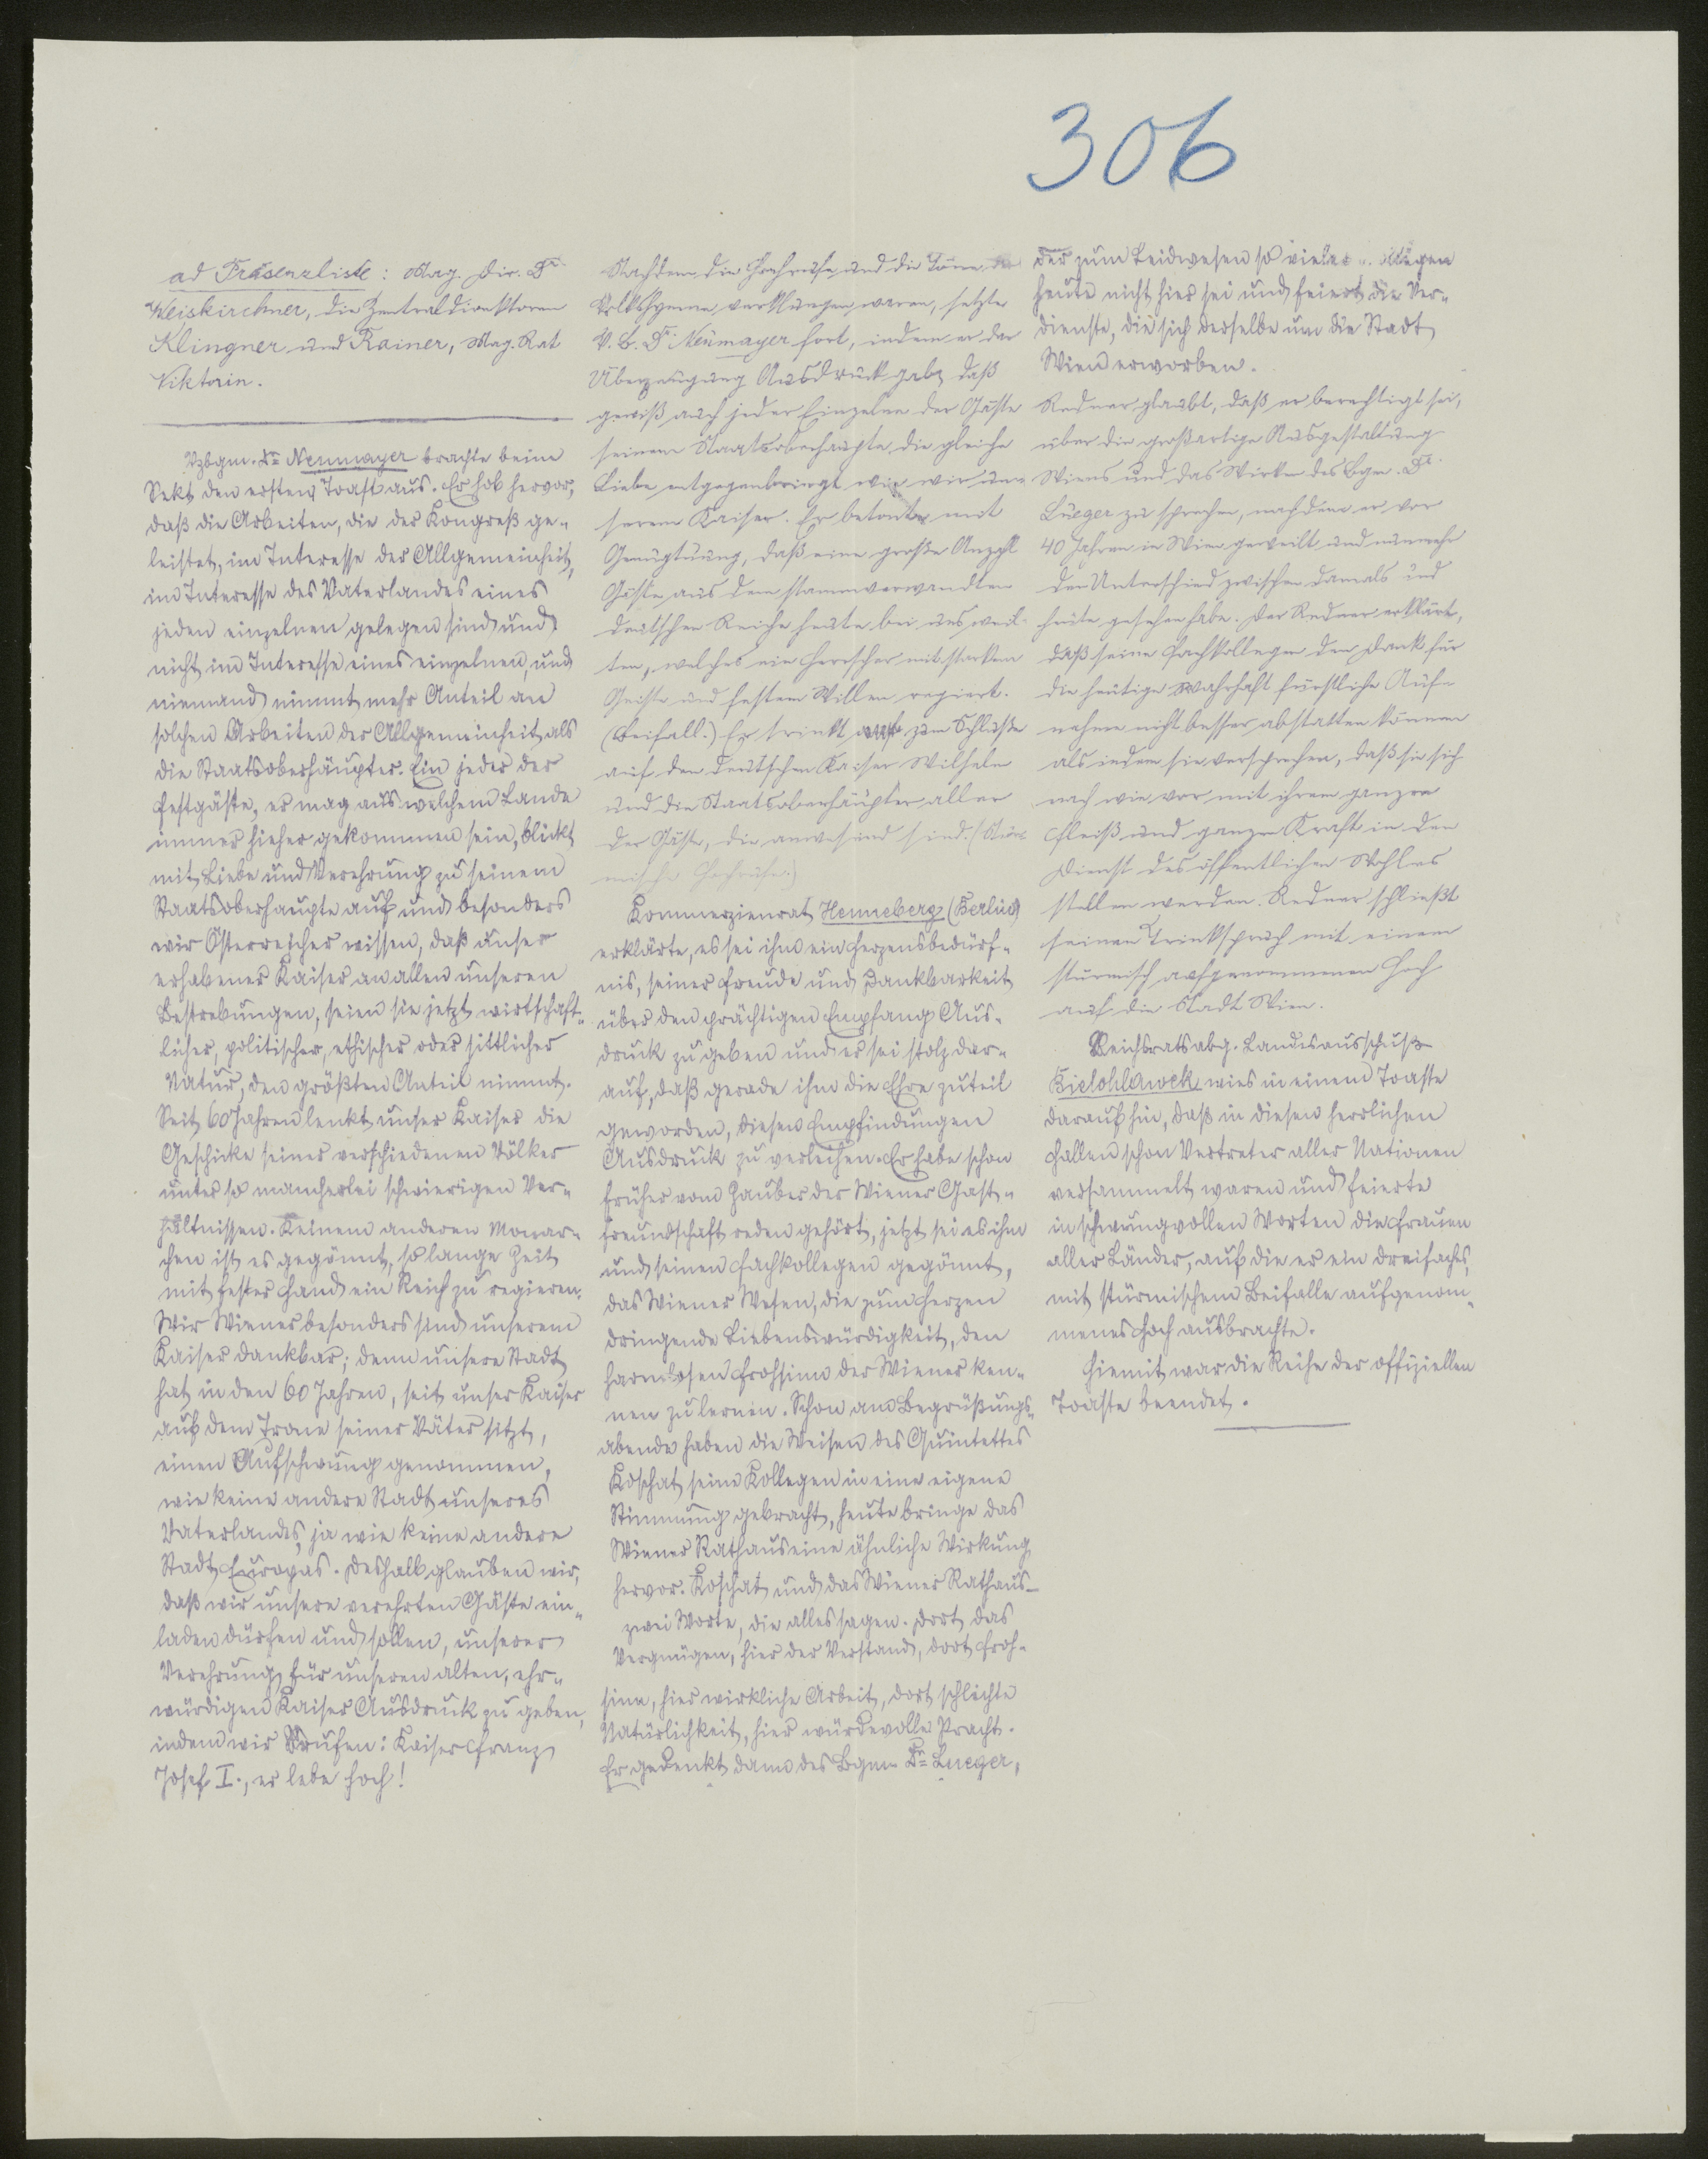 306
ad Präsenzliste: Mag. Dir. Dr.
Weiskirchner, die Zentraldirektoren
Klingner und Rainer, Mag. Rat
Viktorin.
Vzbgm. Dr. Neumayer brachte beim
Sekt den ersten Toast aus. Er hob hervor,
daß die Arbeiten, die der Kongreß ge-
leistet, im Interesse der Allgemeinheit,
im Interesse des Vaterlandes eines
jeden einzelnen gelegen sind und
nicht im Interesse eines einzelnen, und
niemand nimmt mehr Anteil an
solchen Arbeiten der Allgemeinheit als
die Staatsoberhäupter. Ein jeder der
Festgäste, er mag aus welchem Lande
immer hieher gekommen sein, blickt
mit Liebe und Verehrung zu seinem
Staatsoberhaupte auf und besonders
wir Österreicher wissen, daß unser
erhabener Kaiser an allen unseren
Bestrebungen, seien sie jetzt wirtschaft-
licher, politischer, ethischer oder sittlicher
Natur, den größten Anteil nimmt.
Seit 60 Jahren lenkt unser Kaiser die
Geschicke seiner verschiedenen Völker
unter so mancherlei schwierigen Ver-
hältnissen. Keinem anderen Monar-
chen ist es gegönnt, so lange Zeit
mit fester Hand ein Reich zu regieren.
Wir Wiener besonders sind unserem
Kaiser dankbar; denn unsere Stadt
hat in den 60 Jahren, seit unser Kaiser
auf dem Trone seiner Väter sitzt,
einen Aufschwung genommen,
wie keine andere Stadt unseres
Vaterlandes, ja wie keine andere
Stadt Europas. Deshalb glauben wir,
daß wir unsere verehrten Gäste ein-
laden dürfen und sollen, unserer
Verehrung für unseren alten, ehr-
würdigen Kaiser Ausdruck zu geben,
indem wir rufen: Kaiser Franz
Josef I., er lebe hoch!
Nachdem die Hochrufe und die Töne der
Volkshymne verklungen waren, setzte
V. B. Dr. Neumayer fort, indem er der
Überzeugung Ausdruck gab, daß
gewiß auch jeder Einzelne der Gäste
seinem Staatsoberhaupte die gleiche
Liebe entgegenbringt wie wir un-
serem Kaiser. Er betonte mit
Genugtuung, daß eine große Anzahl
Gäste aus dem stammverwandten
deutschen Reiche heute bei uns weil-
ten, welches ein Herrscher mit starkem
Geiste und festem Willen regiert.
(Beifall.) Er trinkt zum Schluße
auf den deutschen Kaiser Wilhelm
und die Staatsoberhäupter aller
der Gäste, die anwesend sind. (Stür-
mische Hochrufe.)
Kommerzienrat Henneberg (Berlin)
erklärte, es sei ihm ein Herzensbedürf-
nis, seiner Freude und Dankbarkeit
über den prächtigen Empfang Aus-
druck zu geben und er sei stolz dar-
auf, daß gerade ihm die Ehre zuteil
geworden, diesen Empfindungen
Ausdruck zu verleihen. Er habe schon
früher vom Zauber der Wiener Gast-
freundschaft reden gehört, jetzt sei es ihm
und seinen Fachkollegen gegönnt,
das Wiener Wesen, die zum Herzen
dringende Liebenswürdigkeit, den
harmlosen Frohsinn der Wiener ken-
nen zu lernen. Schon am Begrüßungs-
abende haben die Weisen des Quintettes
Koschat seine Kollegen in eine eigene
Stimmung gebracht, heute bringe das
Wiener Rathaus eine ähnliche Wirkung
hervor. Koschat und das Wiener Rathaus –
zwei Worte, die alles sagen. Dort das
Vergnügen, hier der Verstand, dort Froh-
sinn, hier wirkliche Arbeit, dort schlichte
Natürlichkeit, hier würdevolle Pracht.
Er gedenkt dann des Bgm. Dr. Lueger,
der zum Leidwesen so vieler
heute nicht hier sei und feiert die Ver-
dienste, die sich derselbe um die Stadt
Wien erworben.
Redner glaubt, daß er berechtigt sei,
über die großartige Ausgestaltung
Wiens und das Wirken des Bgm. Dr.
Lueger zu sprechen, nachdem er vor
40 Jahren in Wien geweilt und nunmehr
den Unterschied zwischen damals und
heute gesehen habe. Der Redner erklärt,
daß seine Fachkollegen den Dank für
die heutige wahrhaft fürstliche Auf-
nahme nicht besser abstatten können
als indem sie versprechen, daß sie sich
nach wie vor mit ihrem ganzen
Fleiß und ganzer Kraft in den
Dienst des öffentlichen Wohles
stellen werden. Redner schließt
seinen Trinkspruch mit einem
stürmisch aufgenommenen Hoch
auf die Stadt Wien.
Reichsratsabg. Landesausschuß
Bielohlawek wies in einem Toaste
darauf hin, daß in diesen herrlichen
Hallen schon Vertreter aller Nationen
versammelt waren und feierte
in schwungvollen Worten die Frauen
aller Länder, auf die er ein dreifaches,
mit stürmischem Beifalle aufgenom-
menes Hoch ausbrachte.
Hiemit war die Reihe der offiziellen
Toaste beendet.